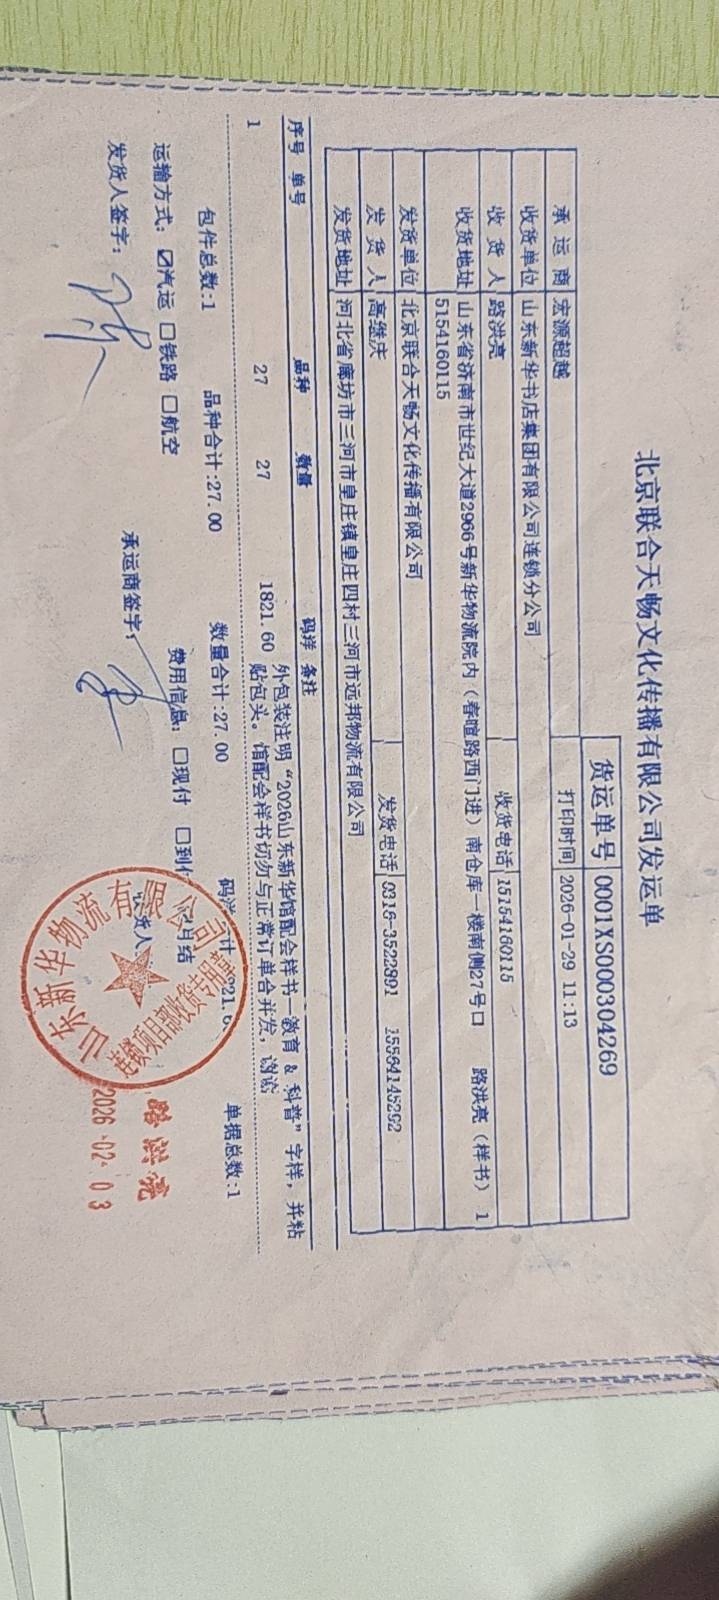 北京联合天畅文化传播有限公司发运单
货运单号 0001XS000304269
承运商 宏源超越 打印时间 2026-01-29 11:13
收货单位 山东新华书店集团有限公司连锁分公司
收货人 路洪亮 收货电话 15154160115
收货地址 山东省济南市世纪大道2966号新华物流院内（春暄路西门进）南仓库一楼南侧27号口 路洪亮（样书）1
5154160115
发货单位 北京联合天畅文化传播有限公司
发货人 高继庆 发货电话 0316-3523891 15564145292
发货地址 河北省廊坊市三河市皇庄镇皇庄四村三河市远邦物流有限公司
序号 单号 品种 数量 码洋 备注
1 27 27 1821.60 外包装注明“2026山东新华馆配会样书—教育&科普”字样，并粘
贴包头。馆配会样书切勿与正常订单合并发，谢谢
包件总数:1 品种合计:27.00 数量合计:27.00 单据总数:1
运输方式: ☑汽运 □铁路 □航空 费用信息: □现付 □到付 月结
发货人签字: 承运商签字: 收货人
山东新华物流有限公司
连锁项目部收货专用章
路洪亮
2026.02.03